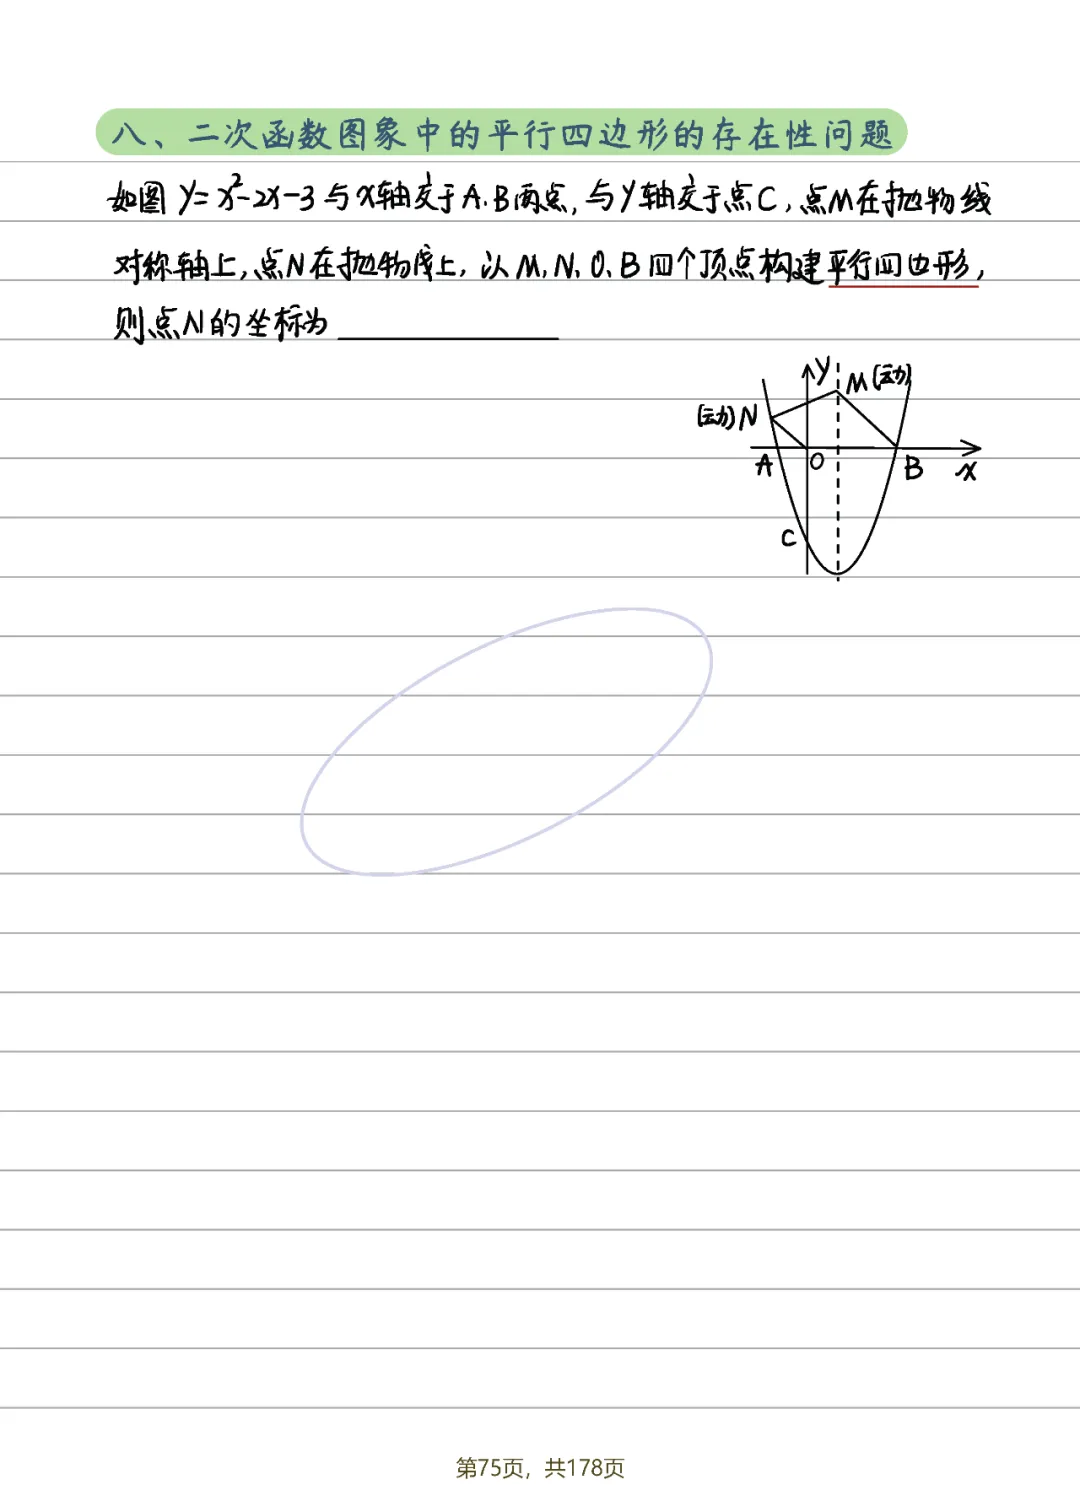 八、二次函数图象中的平行四边形的存在性问题
如图 y=x²-2x-3与x轴交于A.B两点,与y轴交于点C,点M在抛物线
对称轴上,点N在抛物线上,以M、N、O、B四个顶点构建平行四边形,
则点N的坐标为
y
M(动)
(动)N
A
O
B
x
C
第75页，共178页